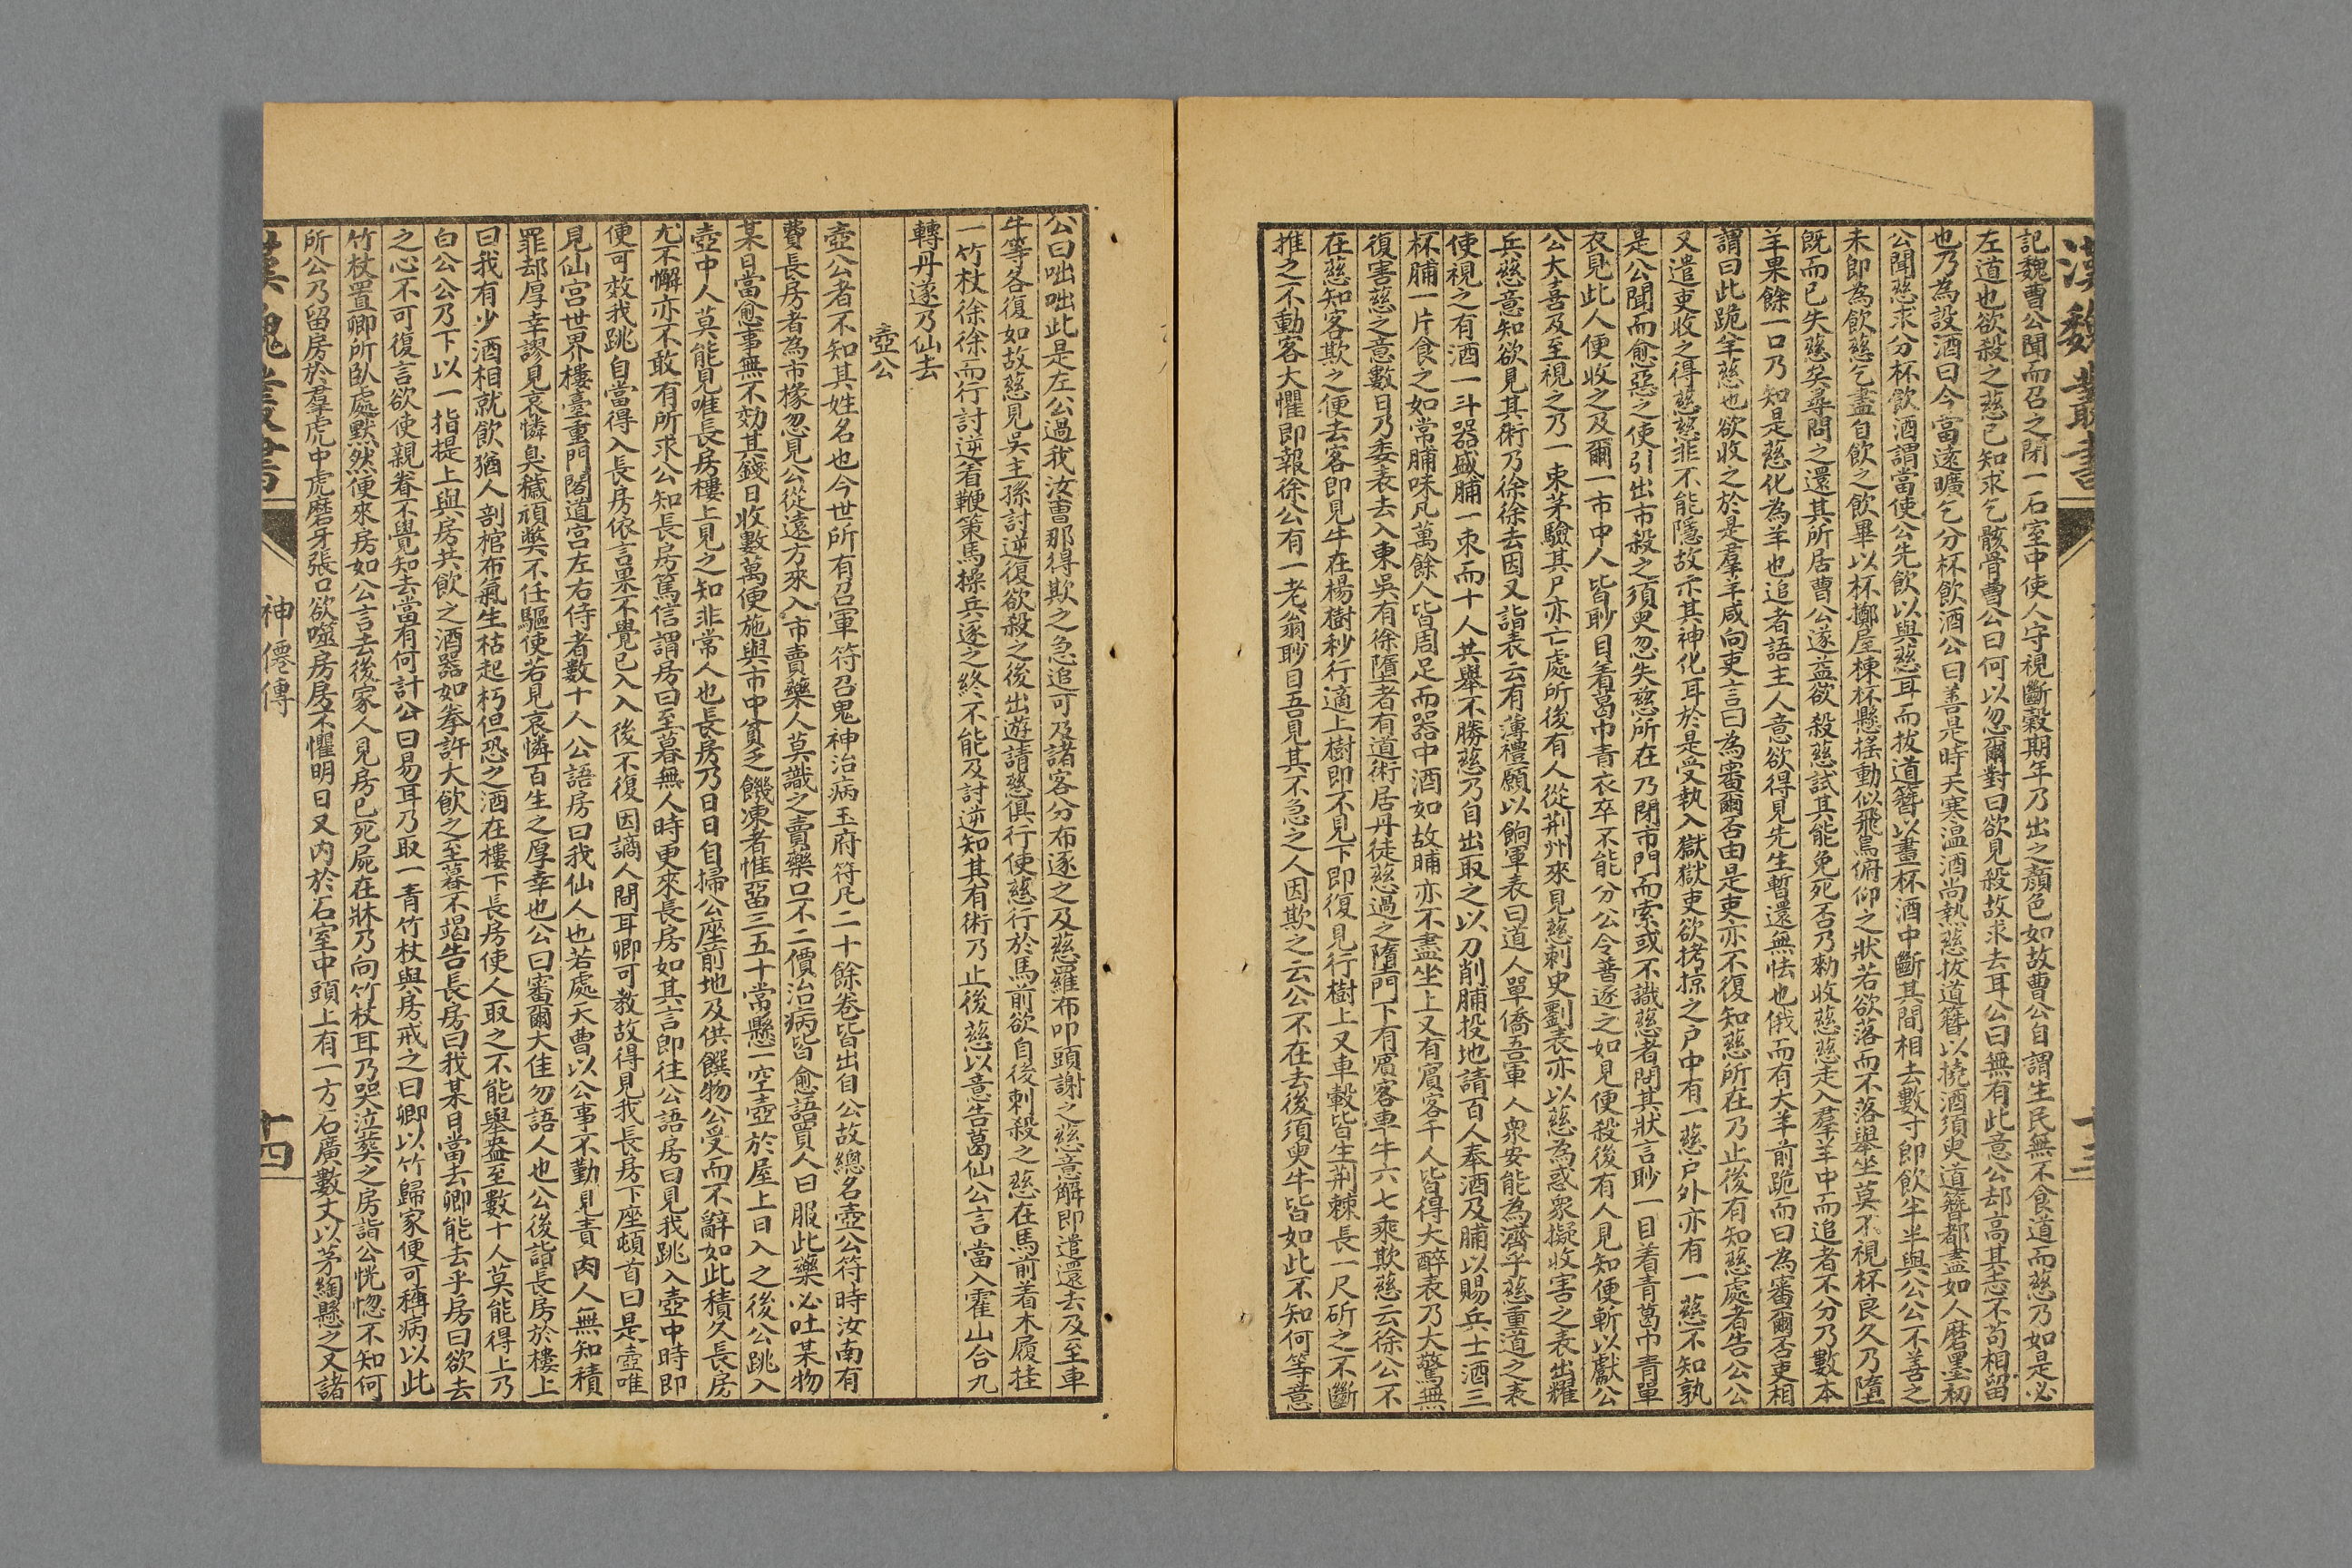 漢魏叢書
十三
記魏曹公聞而召之閉一石室中使人守視斷穀期年乃出之顏色如故曹公自謂生民無不食道而慈乃如是必
左道也欲殺之慈已知求乞骸骨曹公曰何以忽爾對曰欲見殺故求去耳公曰無有此意公却高其志不苟相留
也乃為設酒曰今當遠曠乞分杯飲酒公曰善是時天寒溫酒尚熱慈拔道簪以撓酒須臾道簪都盡如人磨墨初
公聞慈求分杯飲酒謂當使公先飲以與慈耳而拔道簪以畫杯酒中斷其間相去數寸即飲半半與公公不善之
未即為飲慈乞盡自飲之飲畢以杯擲屋棟杯懸搖動似飛鳥俯仰之狀若欲落而不落舉坐莫不視杯良久乃墮
既而已失慈矣尋問之還其所居曹公遂益欲殺慈試其能免死否乃勑收慈慈走入羣羊中而追者不分乃數本
羊果餘一口乃知是慈化為羊也追者語主人意欲得見先生暫還無怯也俄而有大羊前跪而曰為審爾否吏相
謂曰此跪羊慈也欲收之於是羣羊咸向吏言曰為審爾否由是吏亦不復知慈所在乃止後有知慈處者告公公
又遣吏收之得慈慈非不能隱故示其神化耳於是受執入獄獄吏欲拷掠之户中有一慈户外亦有一慈不知孰
是公聞而愈惡之使引出市殺之須臾忽失慈所在乃閉市門而索或不識慈者問其狀言眇一目着青葛巾青單
衣見此人便收之及爾一市中人皆眇目着葛巾青衣卒不能分公令普逐之如見便殺後有人見知便斬以獻公
公大喜及至視之乃一束茅驗其尸亦亡處所後有人從荆州來見慈刺史劉表亦以慈為惑衆擬收害之表出耀
兵慈意知欲見其術乃徐徐去因又詣表云有薄禮願以餉軍表曰道人單僑吾軍人衆安能為濟乎慈重道之表
使視之有酒一斗器盛脯一束而十人共舉不勝慈乃自出取之以刀削脯投地請百人奉酒及脯以賜兵士酒三
杯脯一片食之如常脯味凡萬餘人皆周足而器中酒如故脯亦不盡坐上又有賓客千人皆得大醉表乃大驚無
復害慈之意數日乃委表去入東吳有徐墮者有道術居丹徒慈過之墮門下有賓客車牛六七乘欺慈云徐公不
在慈知客欺之便去客即見牛在楊樹杪行適上樹即不見下即復見行樹上又車轂皆生荆棘長一尺斫之不斷
推之不動客大懼即報徐公有一老翁眇目吾見其不急之人因欺之云公不在去後須臾牛皆如此不知何等意
公曰咄咄此是左公過我汝曹那得欺之急追可及諸客分布逐之及慈羅布叩頭謝之慈意解即遣還去及至車
牛等各復如故慈見吳主孫討逆復欲殺之後出遊請慈俱行使慈行於馬前欲自後刺殺之慈在馬前着木履挂
一竹杖徐徐而行討逆着鞭策馬操兵逐之終不能及討逆知其有術乃止後慈以意告葛仙公言當入霍山合九
轉丹遂乃仙去
壺公
壺公者不知其姓名也今世所有召軍符召鬼神治病玉府符凡二十餘卷皆出自公故總名壺公符時汝南有
費長房者為市掾忽見公從遠方來入市賣藥人莫識之賣藥口不二價治病皆愈語買人曰服此藥必吐某物
某日當愈事無不効其錢日收數萬便施與市中貧乏饑凍者惟留三五十常懸一空壺於屋上日入之後公跳入
壺中人莫能見唯長房樓上見之知非常人也長房乃日日自掃公座前地及供饌物公受而不辭如此積久長房
尤不懈亦不敢有所求公知長房篤信謂房曰至暮無人時更來長房如其言即往公語房曰見我跳入壺中時即
便可效我跳自當得入長房依言果不覺已入入後不復因謫人間耳卿可教故得見我長房下座頓首曰是壺唯
見仙宮世界樓臺重門閣道宮左右侍者數十人公語房曰我仙人也若處天曹以公事不勤見責肉人無知積
罪却厚幸謬見哀憐臭穢頑獘不任驅使若見哀憐百生之厚幸也公曰審爾大佳勿語人也公後詣長房於樓上
曰我有少酒相就飲猶人剖棺布氣生枯起朽但恐之酒在樓下長房使人取之不能舉盎至數十人莫能得上乃
白公公乃下以一指提上與房共飲之酒器如拳許大飲之至暮不竭告長房曰我某日當去卿能去乎房曰欲去
之心不可復言欲使親眷不覺知去當有何計公曰易耳乃取一青竹杖與房戒之曰卿以竹歸家便可稱病以此
竹杖置卿所臥處默然便來房如公言去後家人見房已死屍在牀乃向竹杖耳乃哭泣葬之房詣公恍惚不知何
所公乃留房於羣虎中虎磨牙張口欲噬房房不懼明日又内於石室中頭上有一方石廣數丈以茅綯懸之又諸
漢魏叢書
神僊傳
十四